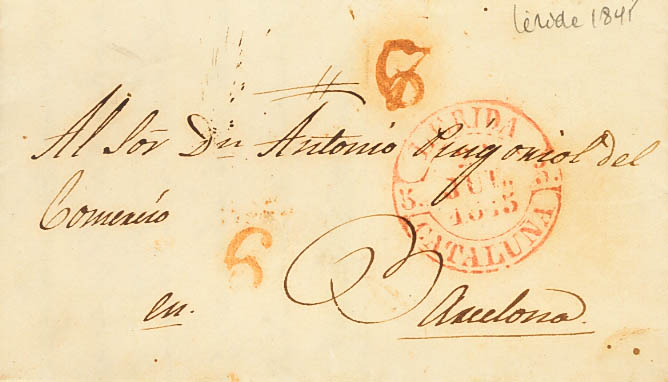 Léride 1845
6
Al Sor Dn Antonio Puigoriol del
Comercio
en Barcelona.
6
LERIDA
JUL.
1845
5. 5.
CATALUÑA